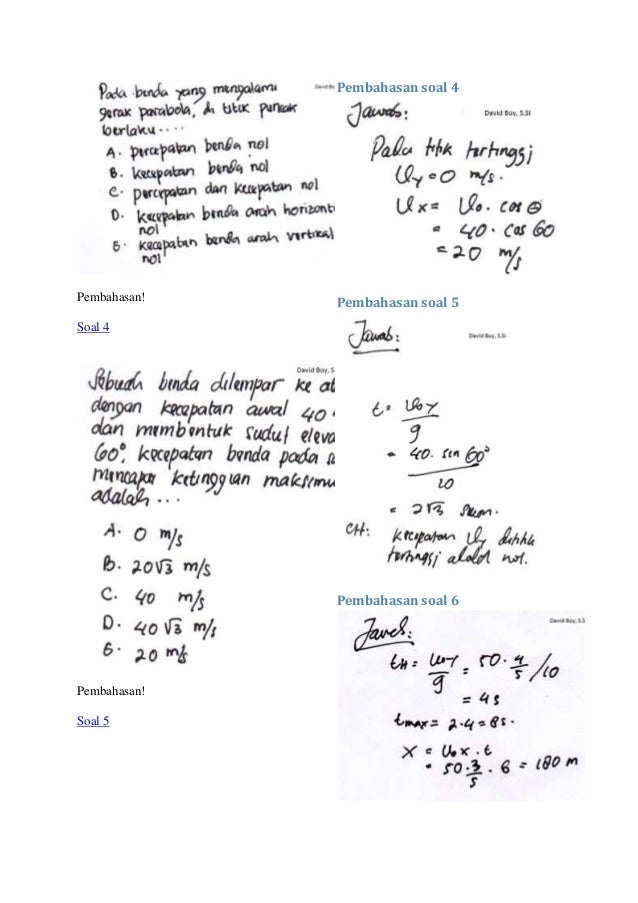 David Bo
Pada benda yang mengalami
gerak parabola, di titik puncak
berlaku....
A. percepatan benda nol
B. kecepatan benda nol
C. percepatan dan kecepatan nol
D. kecepatan benda arah horizont
nol
E. kecepatan benda arah vertikal
nol
Pembahasan!
Soal 4
David Boy, S
Sebuah benda dilempar ke at
dengan kecepatan awal 40
dan membentuk sudut eleva
60°, kecepatan benda pada s
mencapai ketinggian maksimu
adalah ...
A. 0 m/s
B. 20√3 m/s
C. 40 m/s
D. 40√3 m/s
E. 20 m/s
Pembahasan!
Soal 5
Pembahasan soal 4
Jawab:
David Boy, S.Si
Pada titik tertinggi
Uy=0 m/s.
Ux = Uo. cos θ
= 40. cos 60
= 20 m/s
Pembahasan soal 5
Jawab:
David Boy, S.Si
t = Uoy
g
= 40. sin 60°
10
= 2√3 sekon.
Ctt: kecepatan Uy dititik
tertinggi adalah nol.
Pembahasan soal 6
David Boy, S.S
Jawab:
tH = Uoy = 50. 4/5 /10
g
= 4s
tmax = 2.4 = 8s.
X = Uox. t
= 50. 3/5 . 6 = 180 m